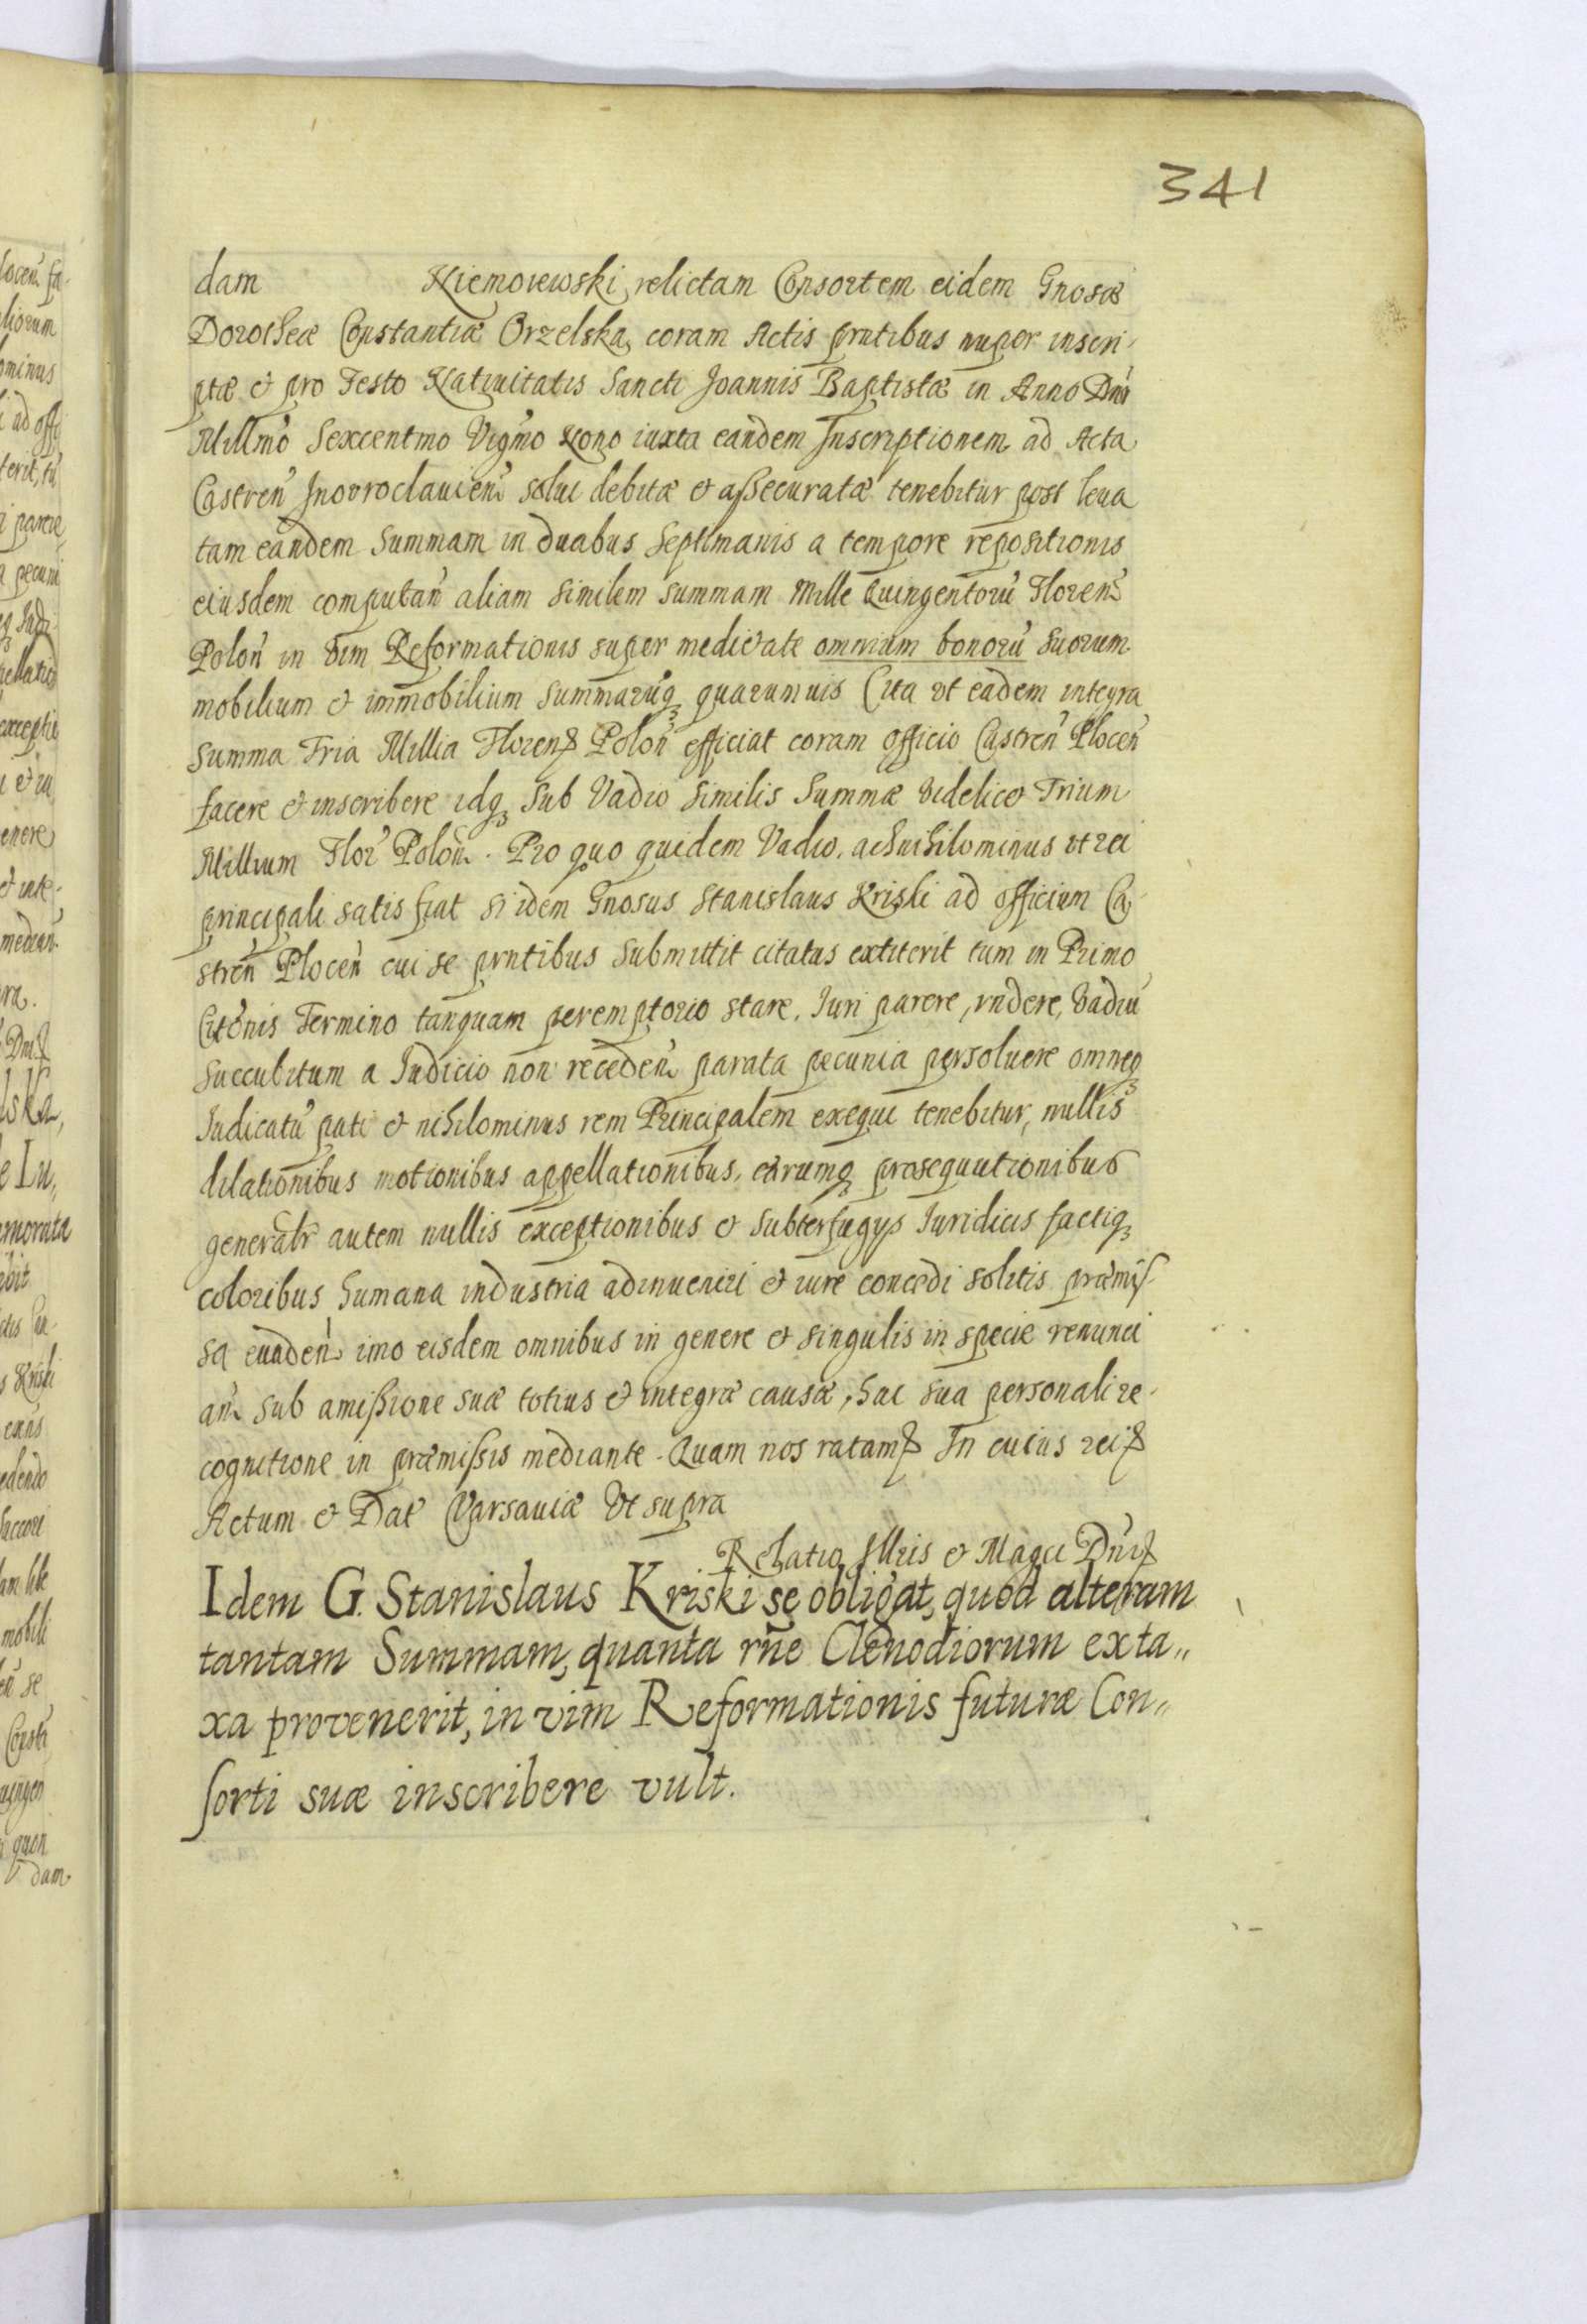 341
dam Niemoiewski relictam Consortem eidem Gnosæ
Dorotheæ Constantiæ Orzelska coram Actis prntibus nuper inscri-
ptæ et pro Festo Natiuitatis Sancti Joannis Baptistæ in Anno Dni
Millmo Sexcentmo Vigmo Nono iuxta eandem Inscriptionem ad Acta
Castren Inowroclauien solui debitæ et assecuratæ tenebitur post leua
tam eandem Summam in duabus Septimanis a tempore repositionis
eiusdem computan aliam similem summam Mille Quingentorũ Floren
Polon in vim Reformationis super medietate omnium bonorũ suorum
mobilium et immobilium summarũq quarumuis Cita vt eadem integra
summa Tria Millia Floren Polon efficiat coram officio Castren Plocen
facere et inscribere idq sub Vadio similis Summæ videlicet Trium
Millium Flor Polon. Pro quo quidem Vadio, ac nihilominus vt rei
principali satis fiat si idem Gnosus Stanislaus Kriski ad officium Ca-
stren Plocen cui se prntibus submittit citatus extiterit tum in Primo
Citõnis Termino tanquam peremptorio stare, Iuri parere, rndere, Vadiũ
succubitum a Iudicio non receden parata pecunia persoluere omneq
Iudicatũ pati et nihilominus rem Principalem exequi tenebitur, nullis
dilationibus motionibus appellationibus, earumq prosequutionibus
generalr autem nullis exceptionibus et subterfugys Iuridicis factiq
coloribus humana industria adinueniri et iure concedi solitis præmis-
sa euaden imo eisdem omnibus in genere et singulis in specie renunci
an sub amissione suæ totius et integræ causæ, hac sua personali re-
cognitione in præmissis mediante. Quam nos ratam In cuius rei
Actum et Dat Varsauiæ Vt supra
Relatio Illris et Magci Dni
Idem G. Stanislaus Kriski se obligat, quod alteram
tantam Summam, quanta rñe Clenodiorum exta„
xa provenerit, in vim Reformationis futuræ Con„
sorti suæ inscribere vult.